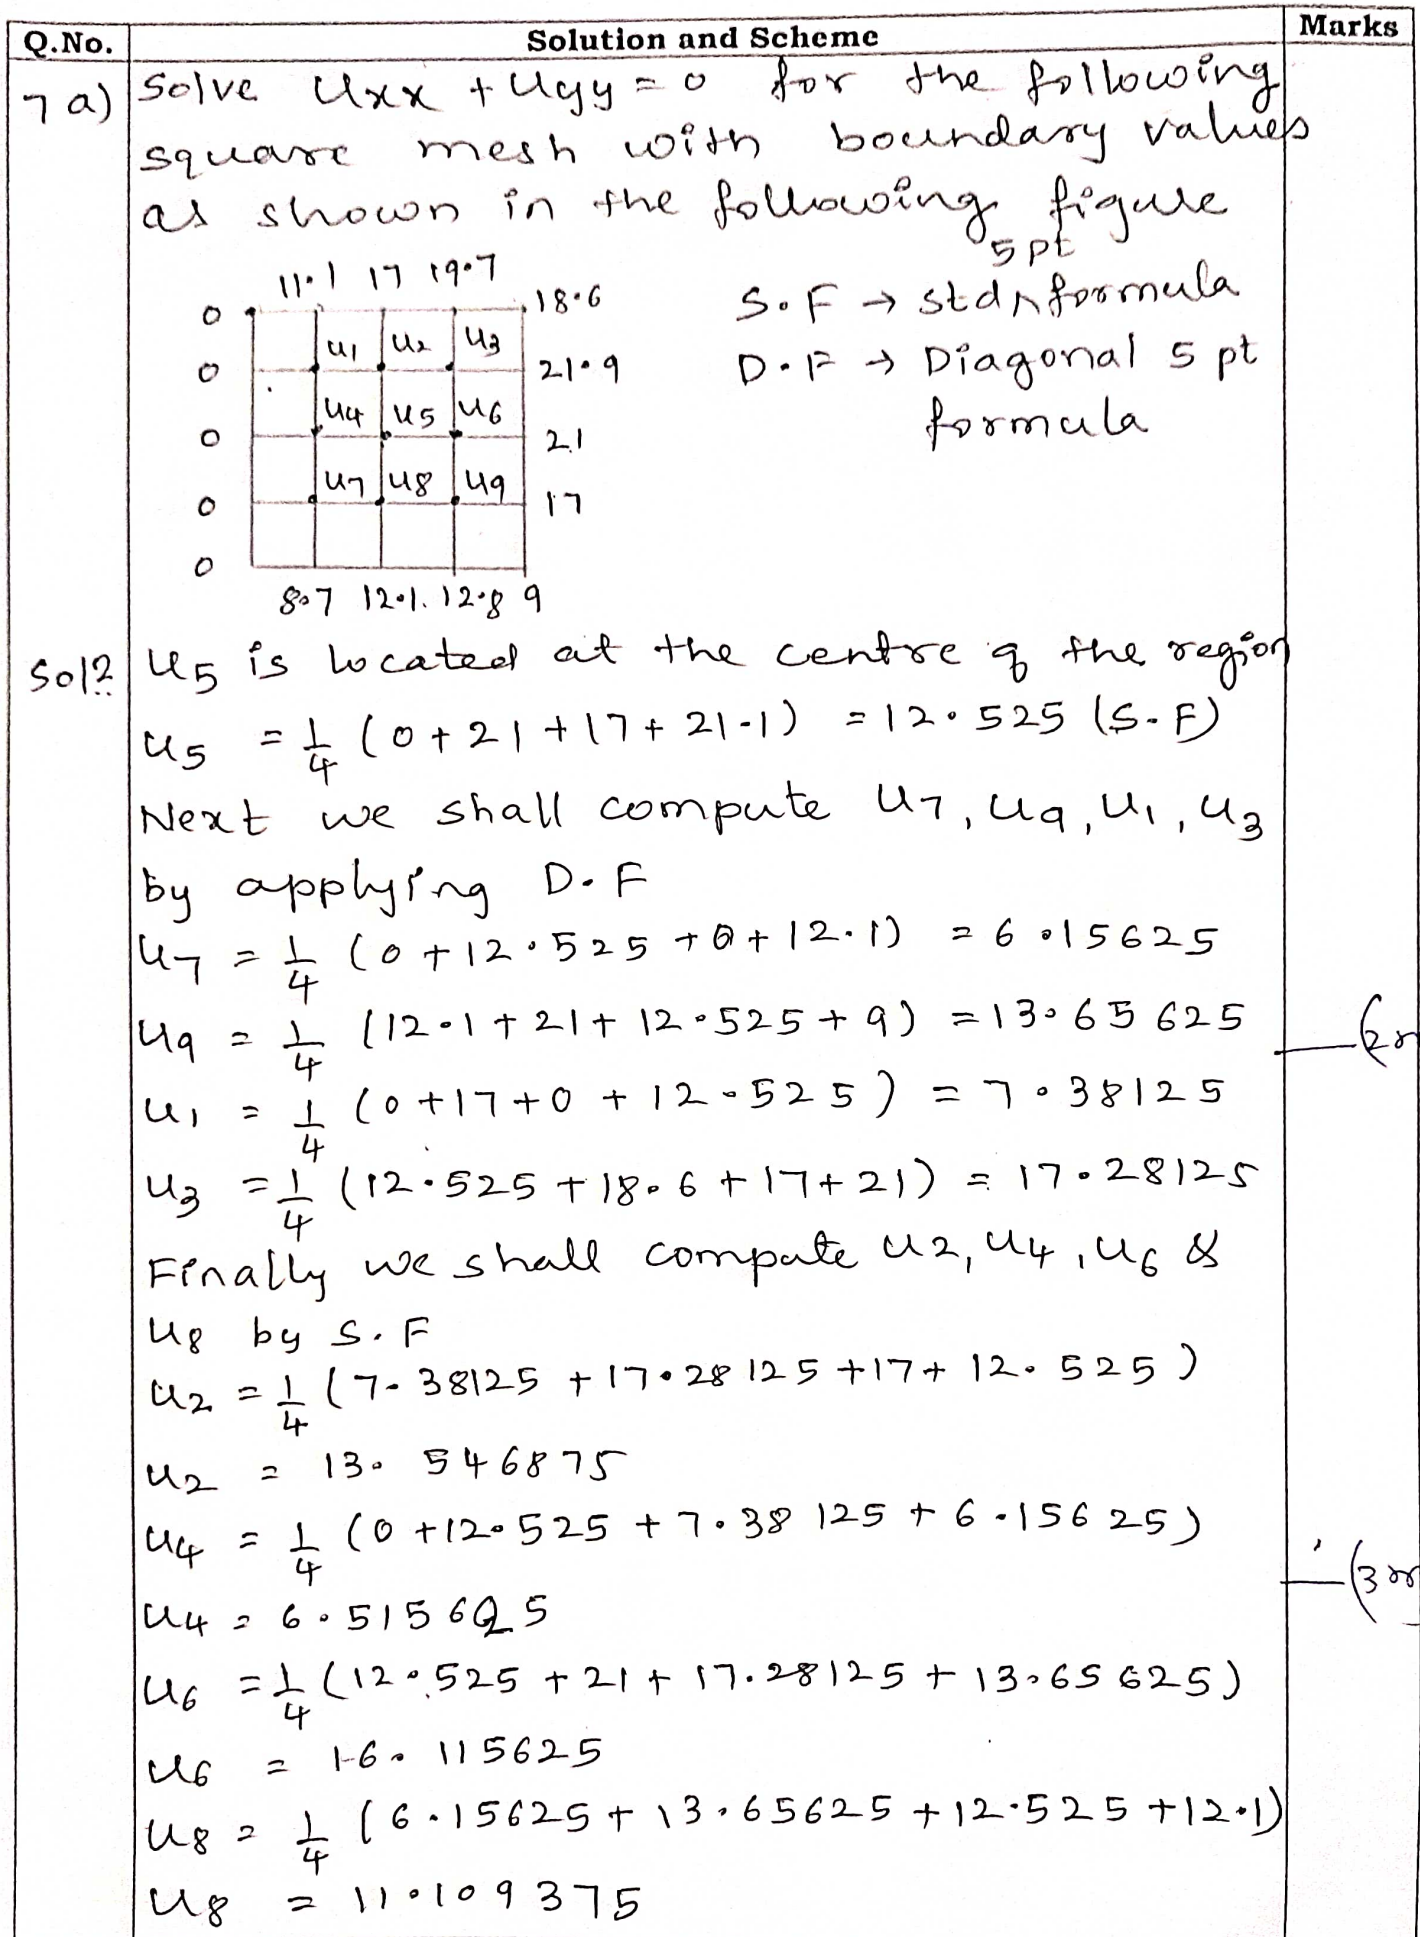 Q.No. Solution and Scheme Marks
7 a) Solve Uxx + Uyy = 0 for the following
square mesh with boundary values
as shown in the following figure
11.1 17 19.7
0 18.6
u1 u2 u3
0 21.9
u4 u5 u6
0 21
u7 u8 u9
0 17
0
8.7 12.1. 12.8 9
5 pt
S.F → std ^ formula
D.F → Diagonal 5 pt
formula
Sol? U5 is located at the centre of the region
U5 = 1/4 (0 + 21 + 17 + 21-1) = 12.525 (S.F)
Next we shall compute U7, U9, U1, U3
by applying D.F
U7 = 1/4 (0 + 12.525 + 0 + 12.1) = 6.15625
U9 = 1/4 (12.1 + 21 + 12.525 + 9) = 13.65625
(2
U1 = 1/4 (0 + 17 + 0 + 12.525) = 7.38125
U3 = 1/4 (12.525 + 18.6 + 17 + 21) = 17.28125
Finally we shall compute U2, U4, U6 &
U8 by S.F
U2 = 1/4 (7.38125 + 17.28125 + 17 + 12.525)
U2 = 13.546875
U4 = 1/4 (0 + 12.525 + 7.38125 + 6.15625)
(3
U4 = 6.515625
U6 = 1/4 (12.525 + 21 + 17.28125 + 13.65625)
U6 = 16.115625
U8 = 1/4 (6.15625 + 13.65625 + 12.525 + 12.1)
U8 = 11.109375